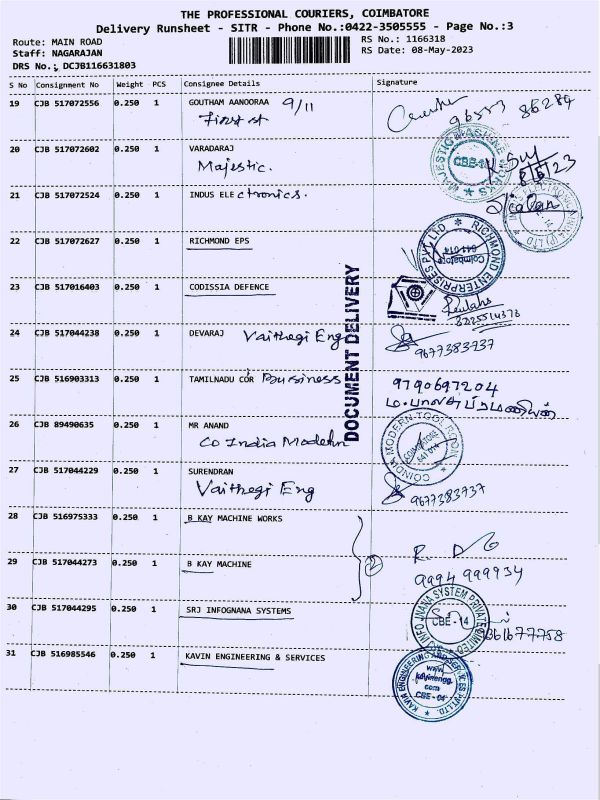 THE PROFESSIONAL COURIERS, COIMBATORE
Delivery Runsheet - SITR - Phone No.:0422-3505555 - Page No.:3
Route: MAIN ROAD
Staff: NAGARAJAN
DRS No.: DCJB116631803
RS No.: 1166318
RS Date: 08-May-2023
S No Consignment No Weight PCS Consignee Details Signature
19 CJB 517072556 0.250 1 GOUTHAM AANOORAA 9/11
First st
86284
20 CJB 517072602 0.250 1 VARADARAJ
Majestic.
CBE-14
8/5/23
21 CJB 517072524 0.250 1 INDUS ELEctronics.
22 CJB 517072627 0.250 1 RICHMOND EPS
RICHMOND ENTERPRISES PVT LTD
Coimbatore
641 014
23 CJB 517016403 0.250 1 CODISSIA DEFENCE
DOCUMENT DELIVERY
24 CJB 517044238 0.250 1 DEVARAJ Vaithegi Eng
9677383737
25 CJB 516903313 0.250 1 TAMILNADU COR Business
9790697204
ம. பாலசுப்ரமணியன்
26 CJB 89490635 0.250 1 MR ANAND
Co India Modern
COINDIA MODERN TOOL ROOM
COIMBATORE
641 014
27 CJB 517044229 0.250 1 SURENDRAN
Vaithegi Eng
9677383737
28 CJB 516975333 0.250 1 B KAY MACHINE WORKS
2
29 CJB 517044273 0.250 1 B KAY MACHINE
9994 999934
30 CJB 517044295 0.250 1 SRJ INFOGNANA SYSTEMS
CBE - 14
31 CJB 516985546 0.250 1 KAVIN ENGINEERING & SERVICES
www.
kavinengg.
com
CBE - 04